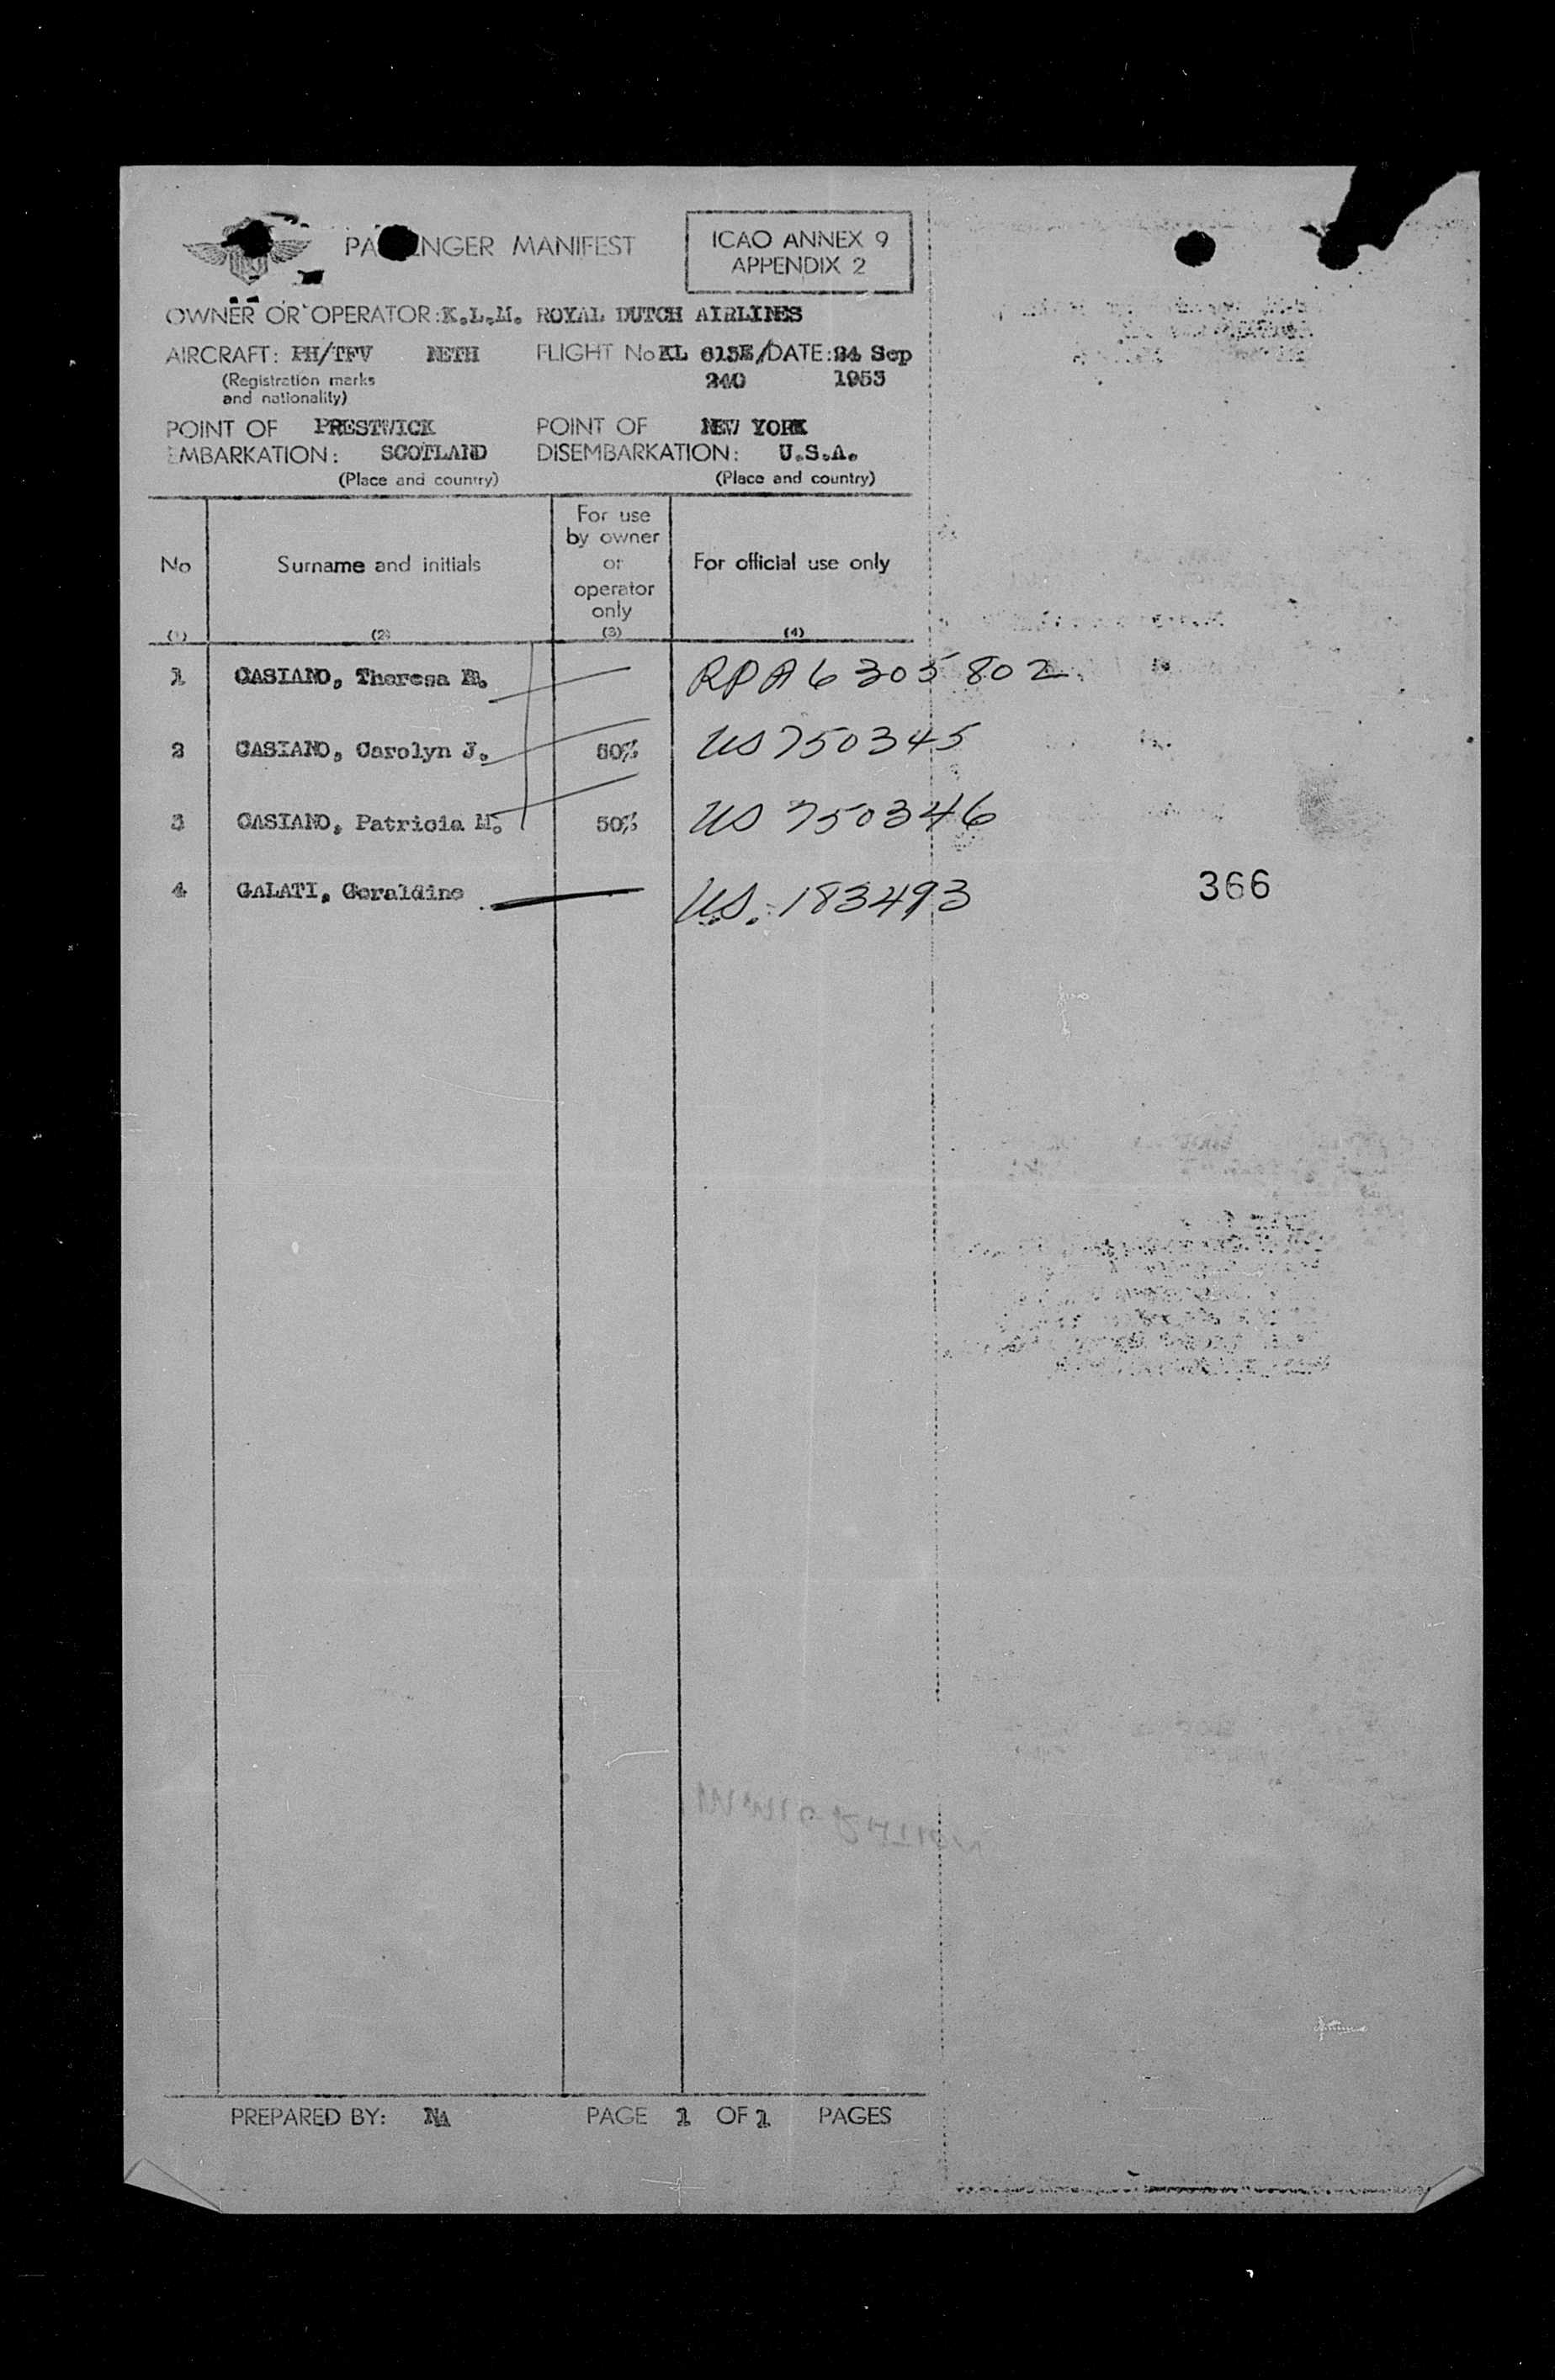 PASSENGER MANIFEST
ICAO ANNEX 9
APPENDIX 2
OWNER OR OPERATOR: K.L.M. ROYAL DUTCH AIRLINES
AIRCRAFT: PH/TFV NETH FLIGHT No KL 613E/ DATE: 24 Sep
(Registration marks 240 1953
and nationality)
POINT OF PRESTWICK POINT OF NEW YORK
EMBARKATION: SCOTLAND DISEMBARKATION: U.S.A.
(Place and country) (Place and country)
No Surname and initials For use by owner or operator only For official use only
(1) (2) (3) (4)
1 CASIANO, Theresa M. RPA 6305802
2 CASIANO, Carolyn J. 50% US 750345
3 CASIANO, Patricia M. 50% US 750346
4 GALATI, Geraldine U.S. 183493
366
PREPARED BY: NA PAGE 1 OF 1 PAGES